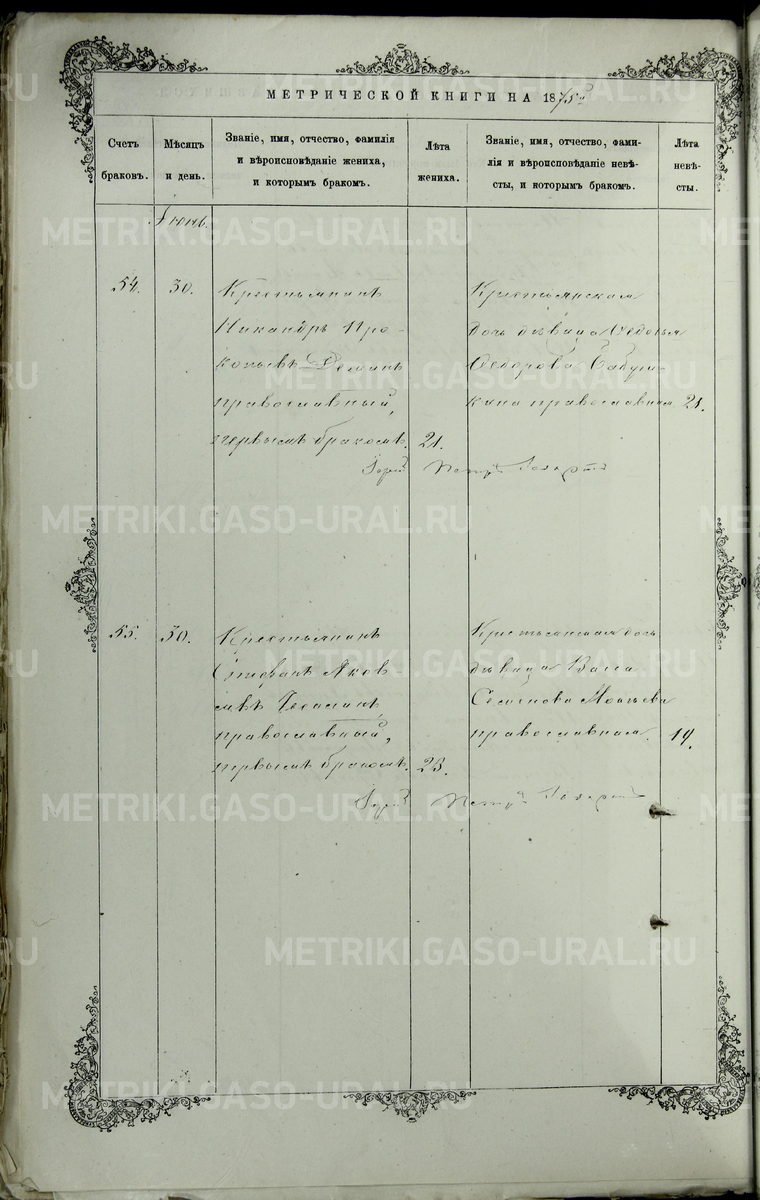 МЕТРИЧЕСКОЙ КНИГИ НА 1875
Счетъ браковъ.
Мѣсяцъ и день.
Званіе, имя, отчество, фамилія
и вѣроисповѣданіе жениха,
и которымъ бракомъ.
Лѣта жениха.
Званіе, имя, отчество, фами-
лія и вѣроисповѣданіе невѣ-
сты, и которымъ бракомъ.
Лѣта невѣ-
сты.
Іюнь.
54. 30.
Крестьянинъ
Никандръ Про-
копьевъ
православный,
первымъ бракомъ. 21.
Крестьянская
дочь дѣвица Ѳедосья
Ѳедорова Бабуш-
кина православная 21.
Петръ
55. 30.
Крестьянинъ
Стефанъ Яков-
левъ
православный,
первымъ бракомъ. 23.
Крестьянская дочь
дѣвица Васса
Семенова
православная. 19.
Петръ
METRIKI.GASO-URAL.RU